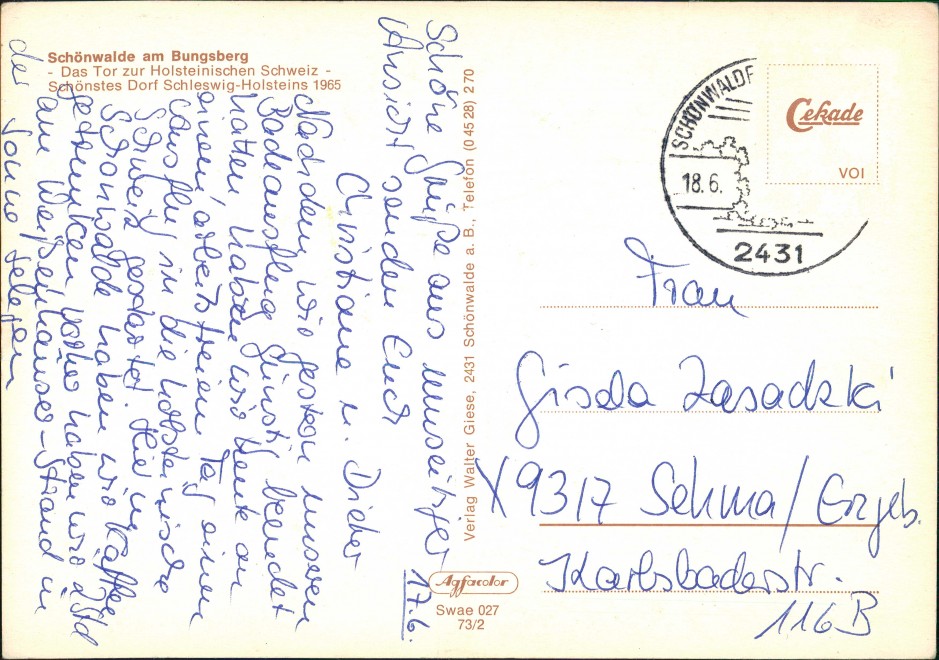 Schönwalde am Bungsberg
- Das Tor zur Holsteinischen Schweiz -
Schönstes Dorf Schleswig-Holsteins 1965
17.6.
Schöne Grüße aus unserer
Ansicht senden Euch
Christiane u. Dieter
Nachdem wir gestern unseren
Badeausflug günstig beendet
hatten haben wir heute an
einem arbeitsfreien Tag einen
Ausflug in die holsteinische
Schweiz gestartet. Hier in
Schönwalde haben wir Kaffee
getrunken vorher haben wir 2 Std
am Weißenhäuser-Strand in
der Sonne gelegen
Verlag Walter Giese, 2431 Schönwalde a. B., Telefon (0 45 28) 2 70
Agfacolor
Swae 027
73/2
SCHÖNWALDE
18.6.
2431
Cekade
VOI
Frau
Gisela Zasadzki
X9317 Sehma/Erzgeb.
Karlsbaderstr.
116B